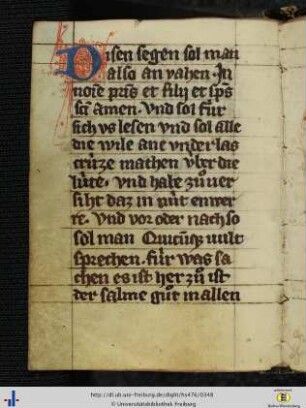 Disen segen sol man
also an vahen. In
noīe pr̄is et filij et sp̄s
sc̄i amen. vnd sol für
sich vs lesen vnd sol alle
die wile ane vnderlas
crütze machen vber die
lüte. vnd habe zůuer
siht daz in nüt enwer
re. vnd vor oder nach so
sol man Quicūq; uult
sprechen. für was sa
chen es ist her zů ist
der salme gůt in allen
http://dl.ub.uni-freiburg.de/diglit/hs476/0348
© Universitätsbibliothek Freiburg